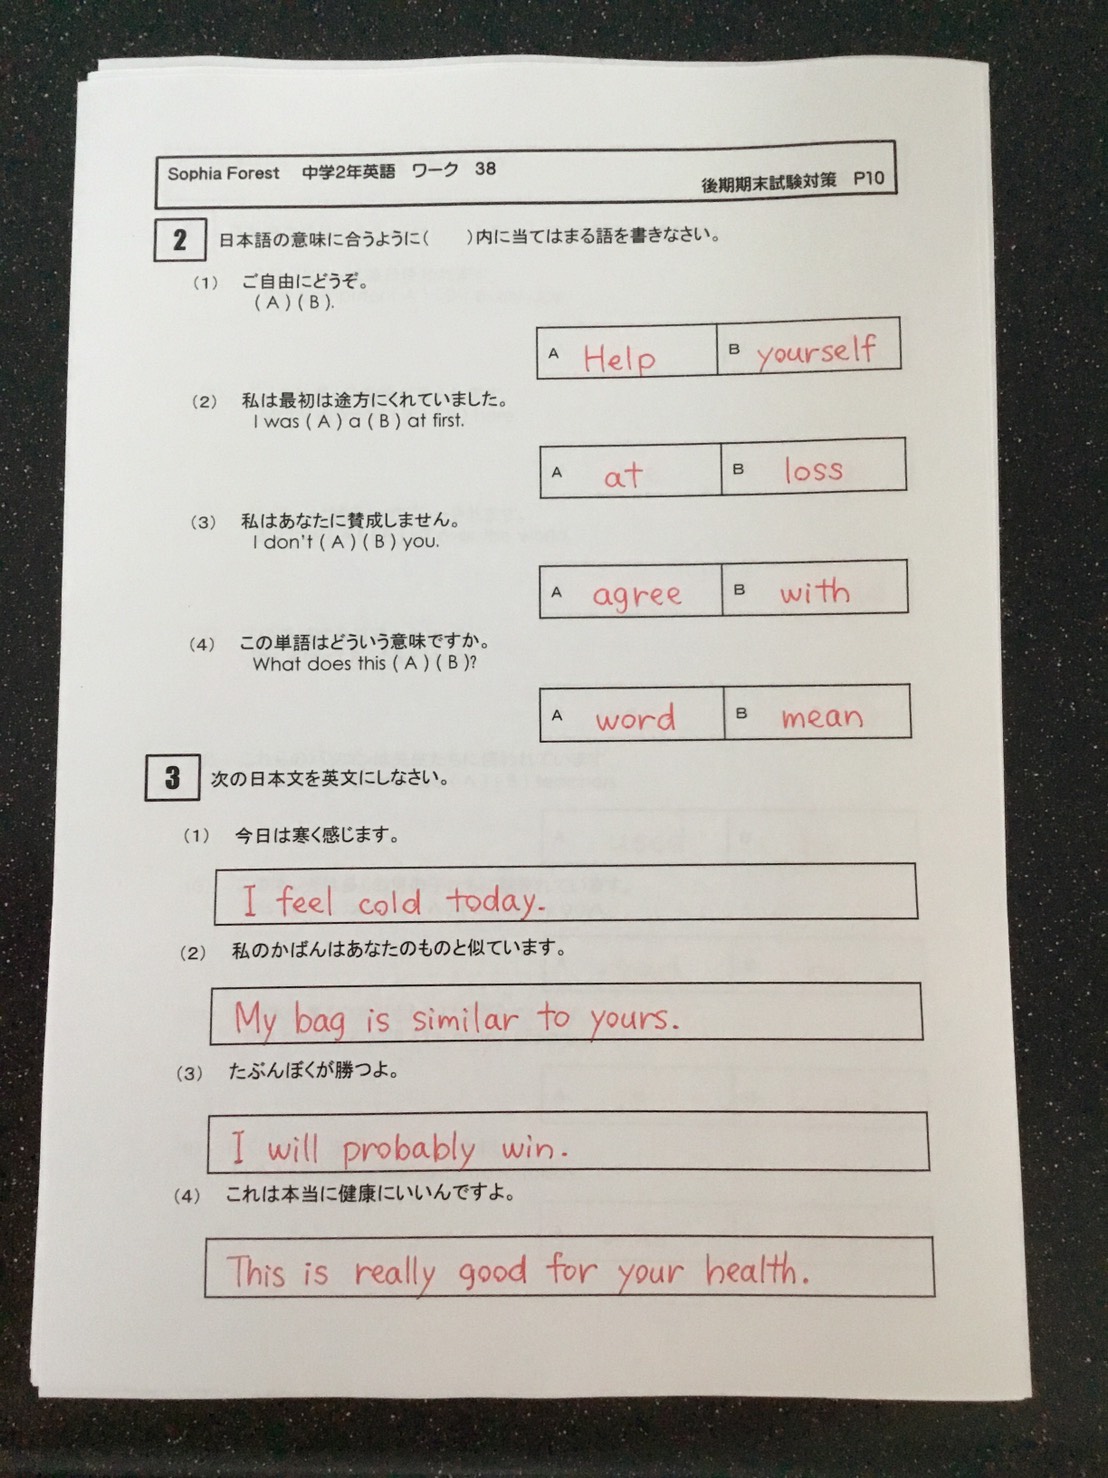 Sophia Forest 中学2年英語 ワーク 38
後期期末試験対策 P10
2 日本語の意味に合うように( )内に当てはまる語を書きなさい。
(1) ご自由にどうぞ。
( A ) ( B ).
A Help B yourself
(2) 私は最初は途方にくれていました。
I was ( A ) a ( B ) at first.
A at B loss
(3) 私はあなたに賛成しません。
I don't ( A ) ( B ) you.
A agree B with
(4) この単語はどういう意味ですか。
What does this ( A ) ( B )?
A word B mean
3 次の日本文を英文にしなさい。
(1) 今日は寒く感じます。
I feel cold today.
(2) 私のかばんはあなたのものと似ています。
My bag is similar to yours.
(3) たぶんぼくが勝つよ。
I will probably win.
(4) これは本当に健康にいいんですよ。
This is really good for your health.